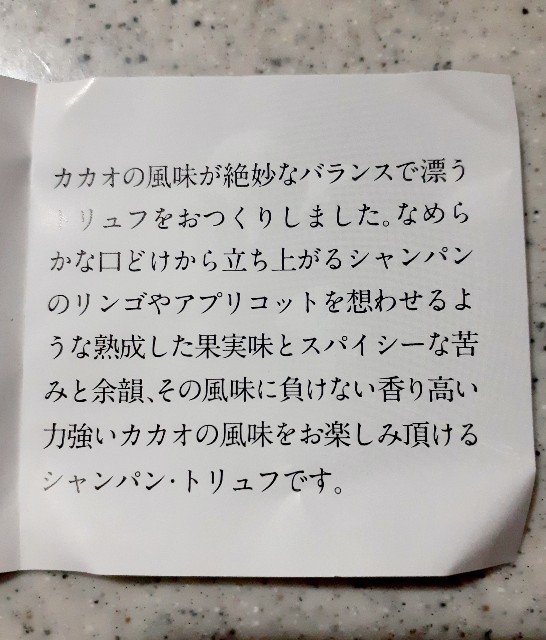 カカオの風味が絶妙なバランスで漂う
トリュフをおつくりしました。なめら
かな口どけから立ち上がるシャンパン
のリンゴやアプリコットを想わせるよ
うな熟成した果実味とスパイシーな苦
みと余韻、その風味に負けない香り高い
力強いカカオの風味をお楽しみ頂ける
シャンパン・トリュフです。